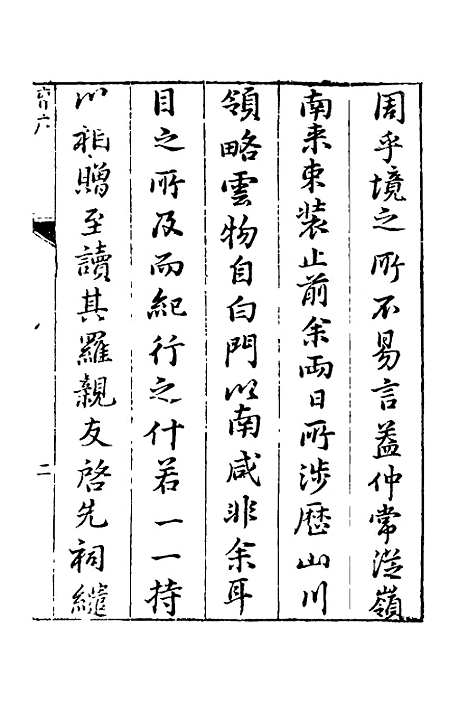 周乎境之所不易言葢仲常從嶺
南来束装止前余両日所涉歴山川
領略雲物自白門以南咸非余耳
目之所及而紀行之什若一一持
以相贈至讀其羅親友啓先祠繾
二